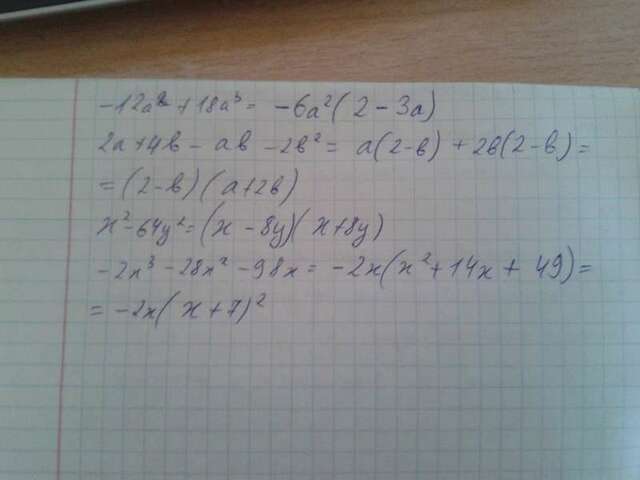 -12a² + 18a³ = -6a²(2 - 3a)
2a + 4b - ab - 2b² = a(2-b) + 2b(2-b) =
= (2-b)(a+2b)
x² - 64y² = (x - 8y)(x + 8y)
-2x³ - 28x² - 98x = -2x(x² + 14x + 49) =
= -2x(x + 7)²